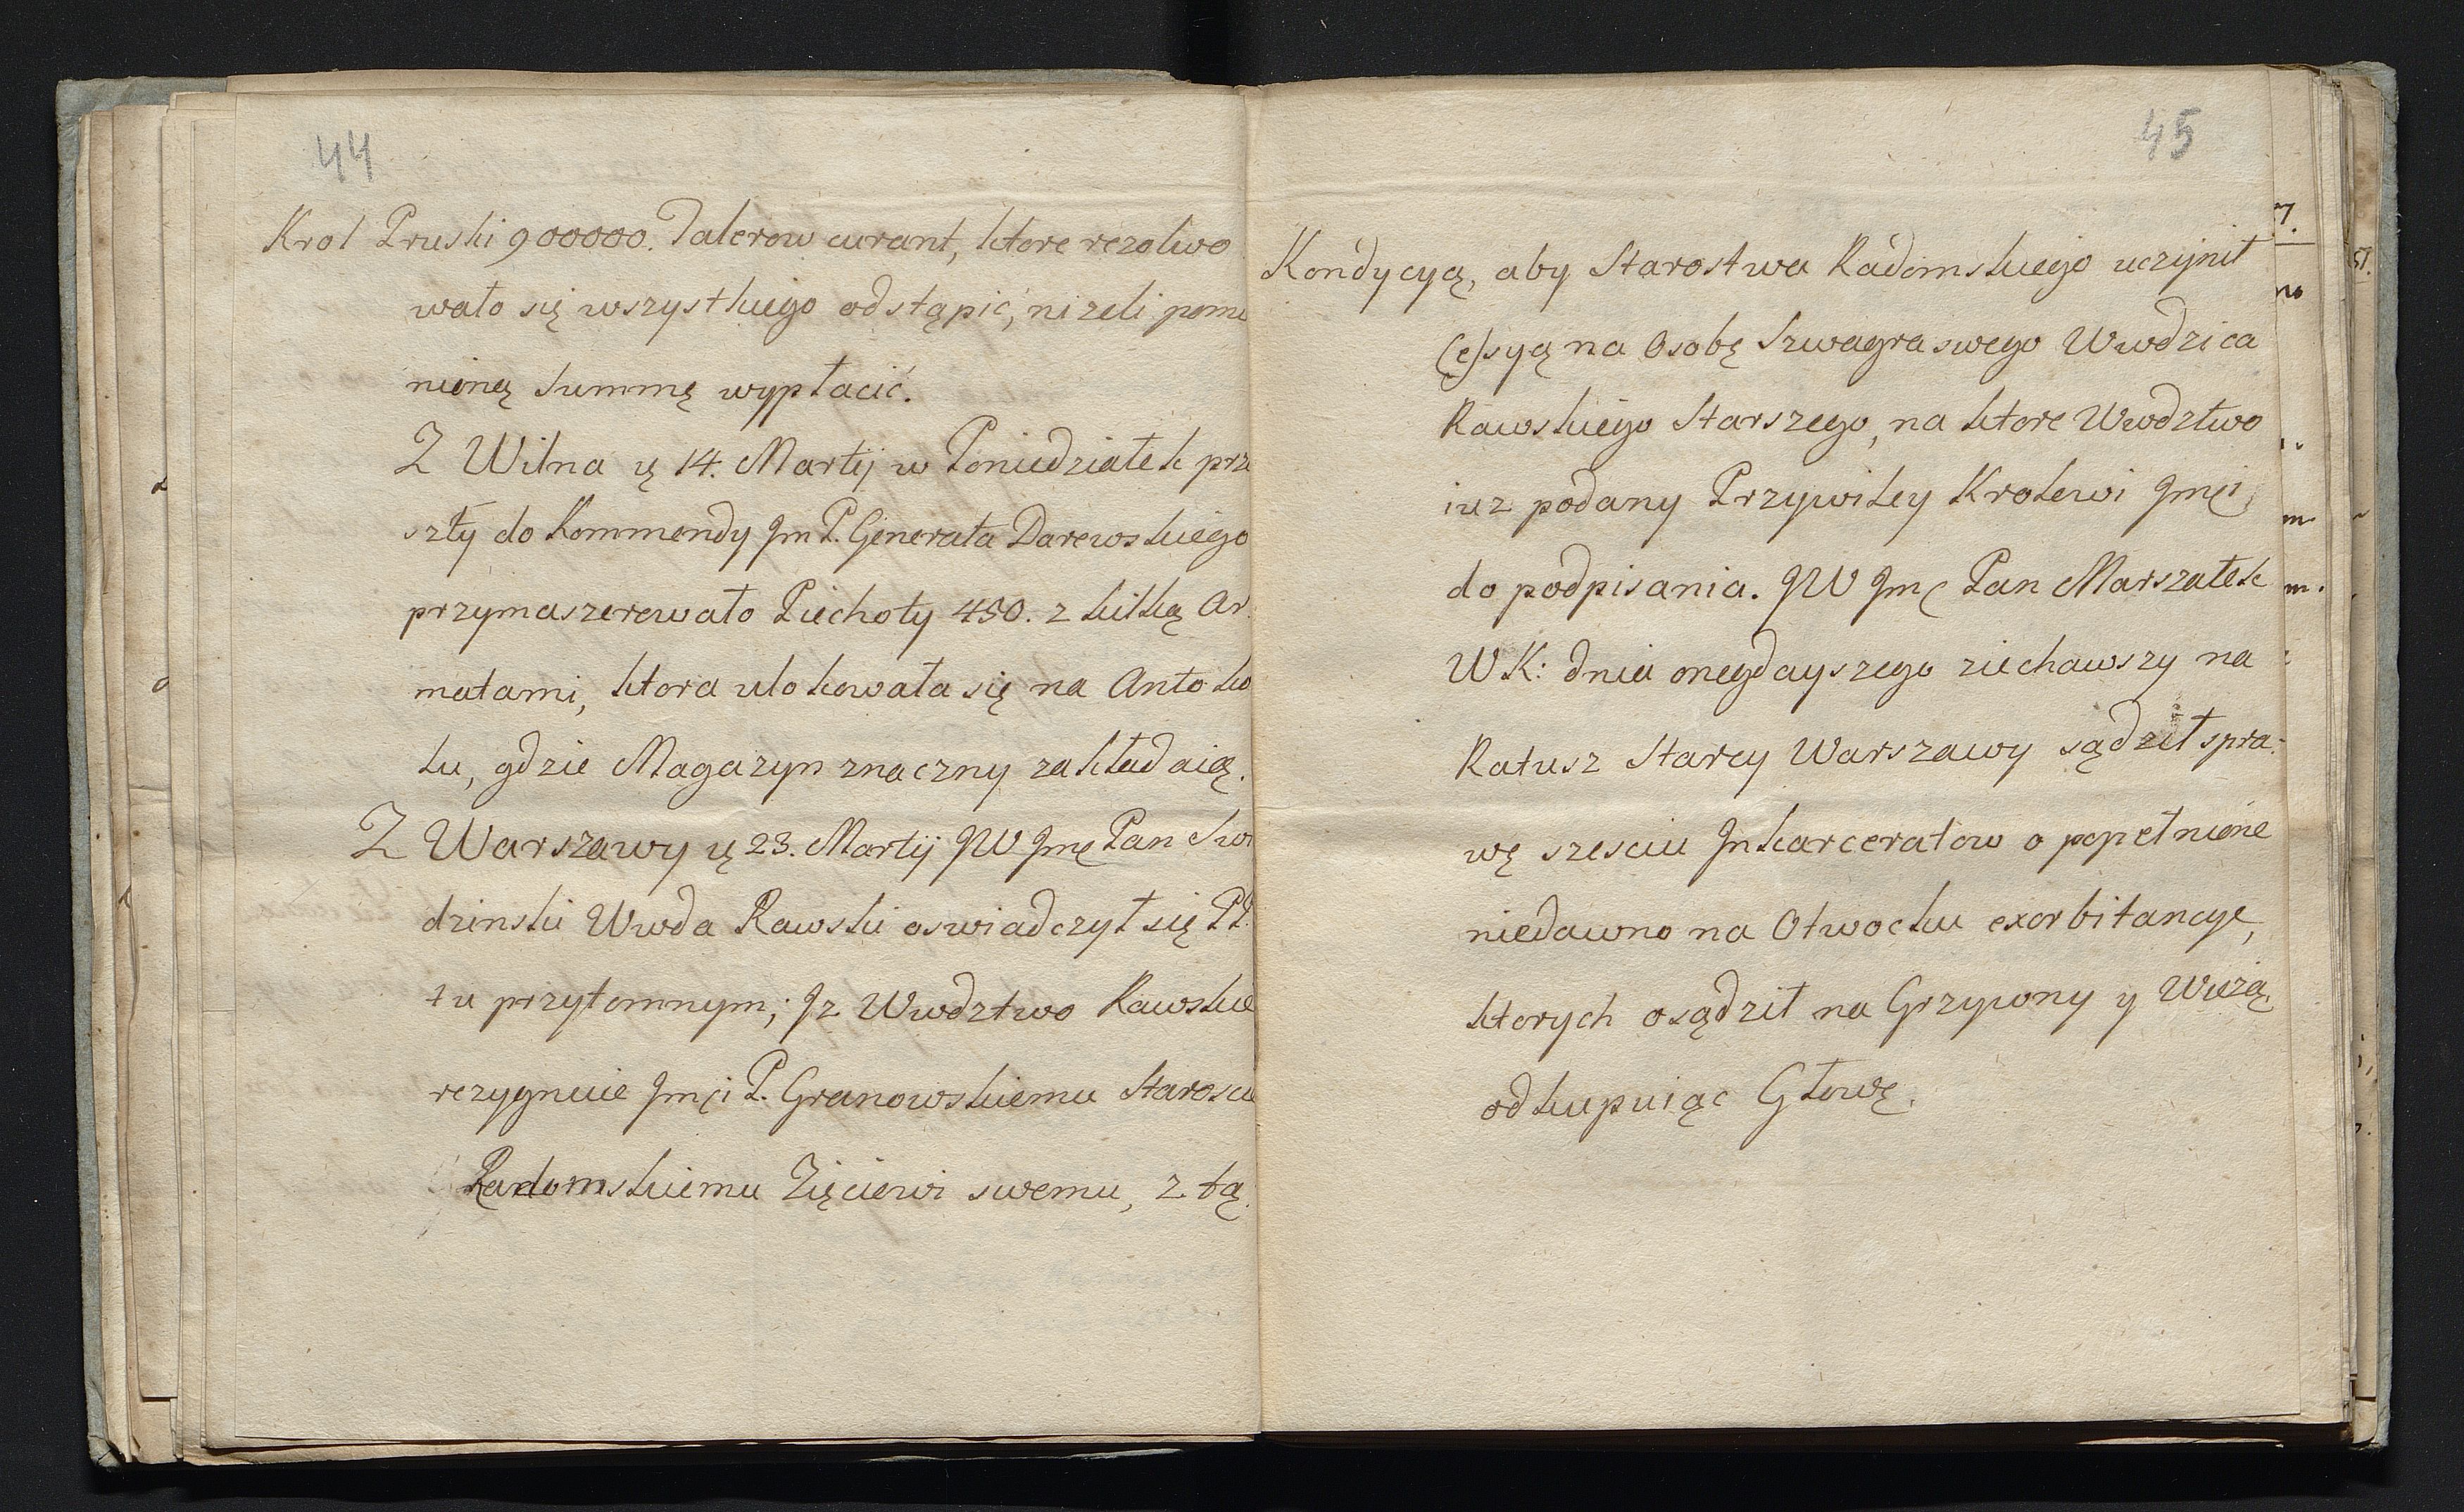 44
Krol Pruski 900000. Talerow curant, ktore rezolwo
wało się wszystkiego odstąpić, nizeli pomi
nioną Summę wypłacić.
Z Wilna ą 14. Martij w Poniedziałek prze
szły do Kommendy Jm P. Generała Darewskiego
przymaszerowało Piechoty 450. z kilką Ar
matami, ktora ulokowała się na Antoko
lu, gdzie Magazyn znaczny zakładaią.
Z Warszawy ą 23. Martij JW Jmę Pan Swi
dzinski Wwda Rawski oswiadczył się PP.
tu przytomnym; Jz Wwdztwo Rawskie
rezygnuie Jmci P. Granowskiemu Staroscie
Radomskiemu Zięciowi swemu, z tą
45
Kondycyą, aby Starostwa Radomskiego uczynił
Cessyą na Osobę Szwagra swego Wwdzica
Rawskiego Starszego, na ktore Wwdztwo
iuz podany Przywiley Krolowi Jmci
do podpisania. JW Jmc Pan Marszałek
WK: dnia onegdayszego ziechawszy na
Ratusz Starey Warszawy sądził spra-
wę szesciu Inkarceratow o popełnione
niedawno na Otwocku exorbitancye,
ktorych osądził na Grzywny y Wiezą,
odkupuiąc Głowę.